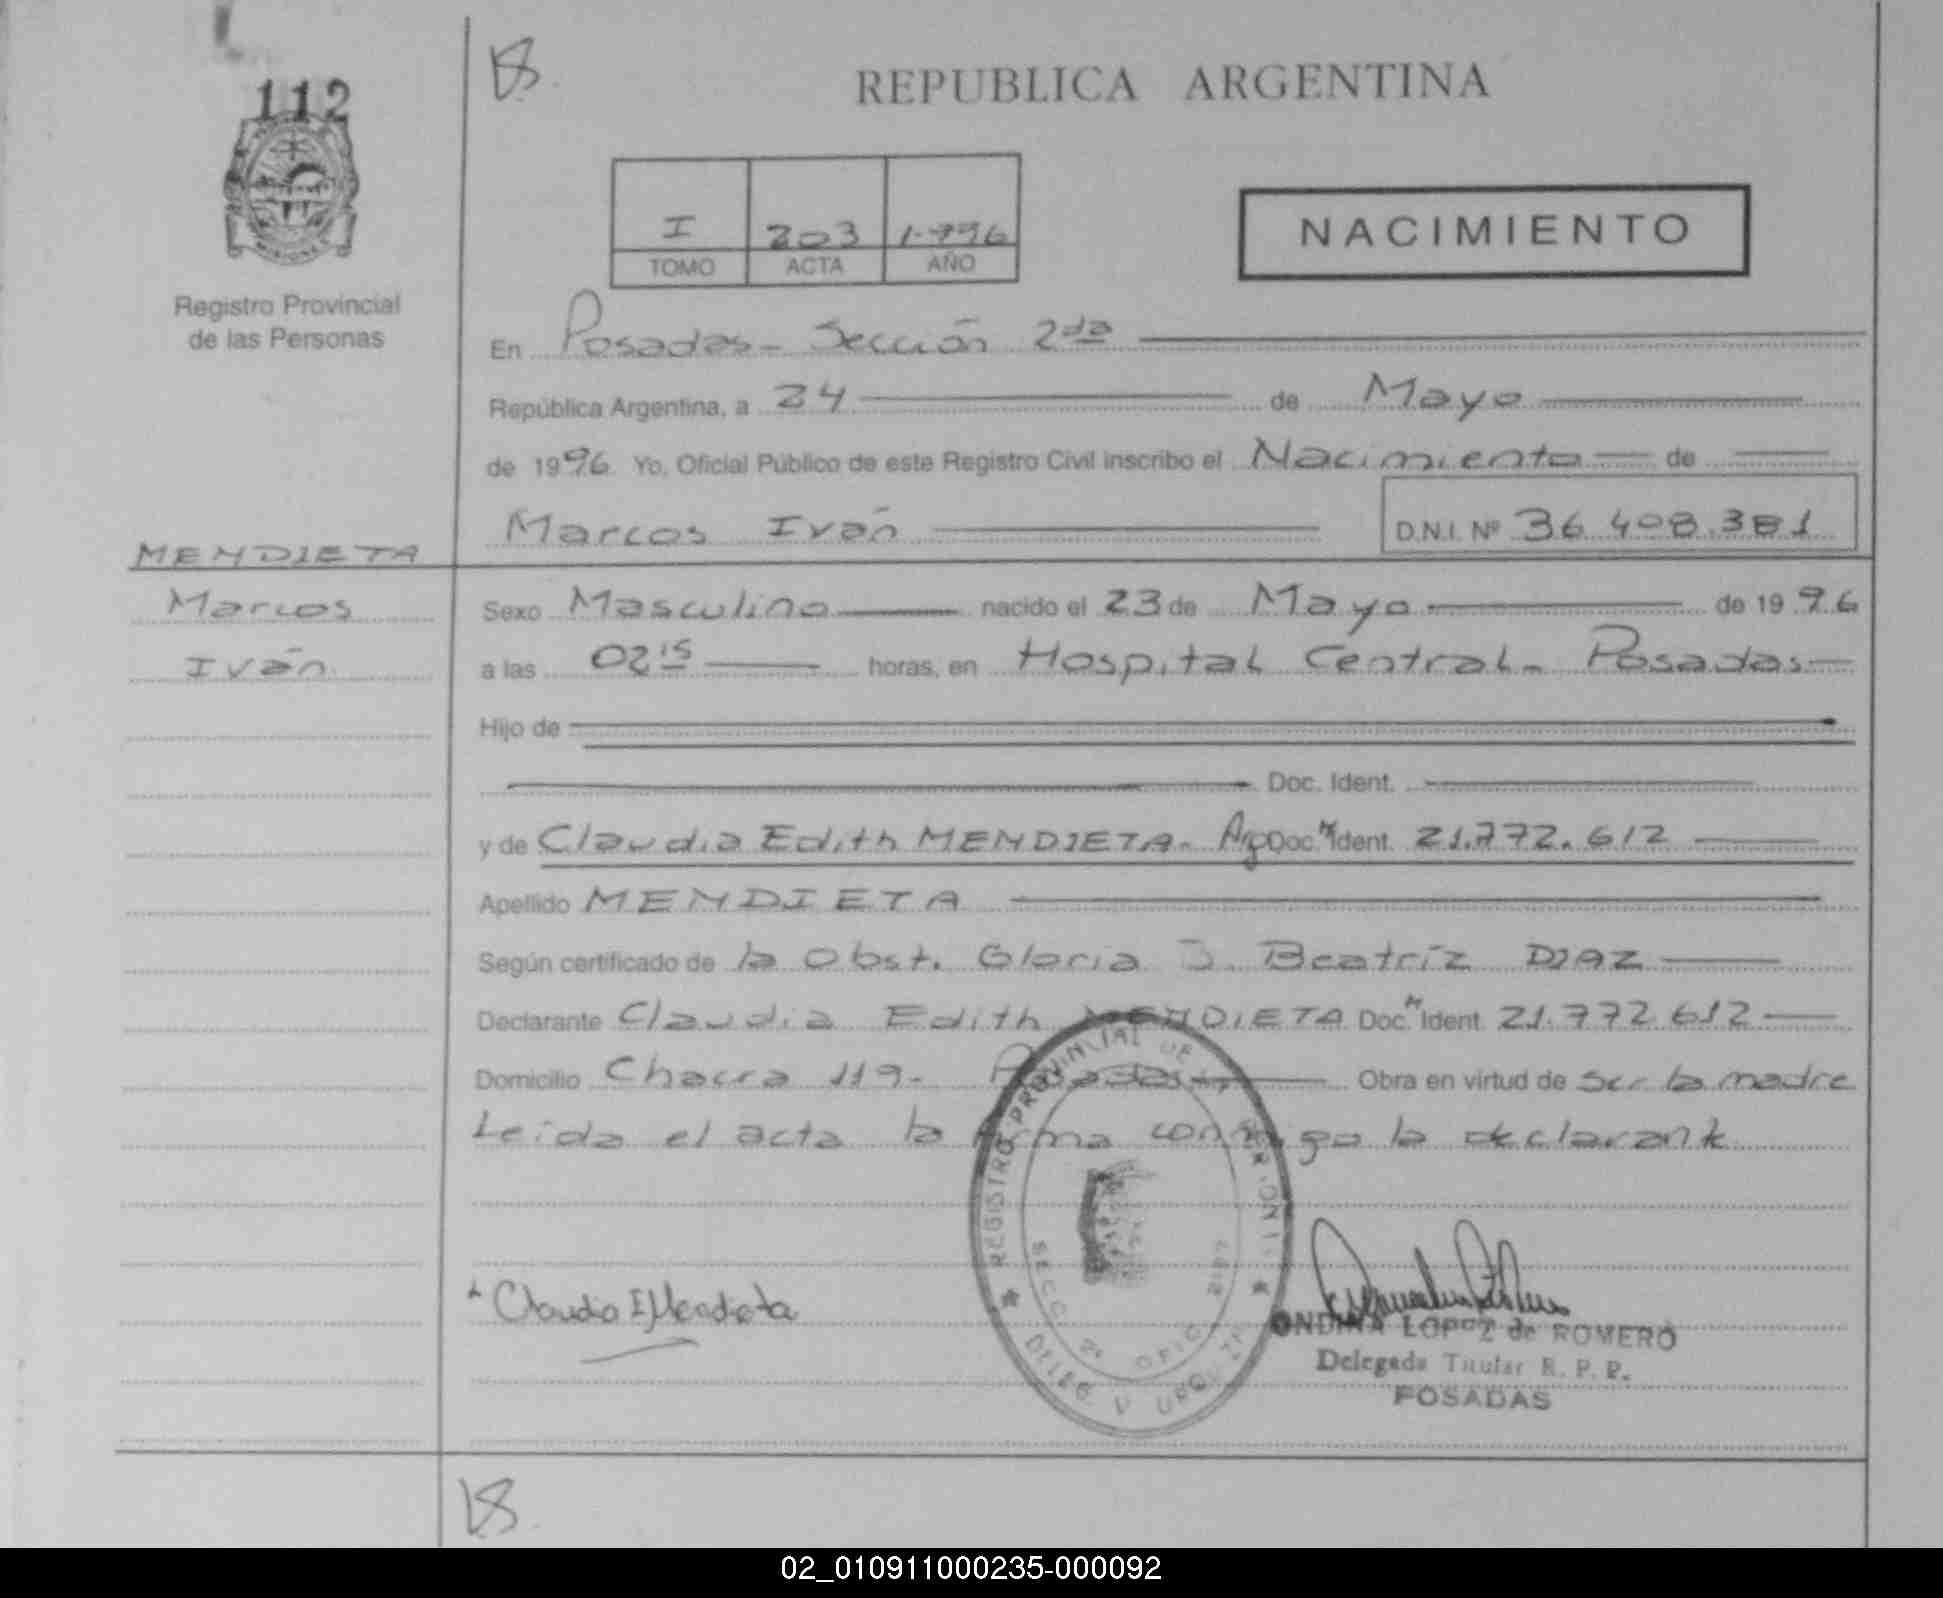 112
REPUBLICA ARGENTINA
I 203 1.996
TOMO ACTA AÑO
NACIMIENTO
MISIONES
Registro Provincial
de las Personas
En Posadas - Sección 2da
República Argentina, a 24 de Mayo
de 1996 Yo, Oficial Público de este Registro Civil inscribo el Nacimiento de
Marcos Iván D.N.I. Nº 36.408.381
MENDIETA
Marcos
Iván
Sexo Masculino nacido el 23 de Mayo de 1996
a las 02 15 horas, en Hospital Central - Posadas
Hijo de
Doc. Ident.
y de Claudia Edith MENDIETA - Arg Doc. Ident. 21.772.612
Apellido MENDIETA
Según certificado de la Obst. Gloria J. Beatríz DIAZ
Declarante Claudia Edith MENDIETA Doc. Ident 21.772.612
Domicilio Chacra 119 - Posadas Obra en virtud de ser la madre
Leída el acta la firma conmigo la declarante
REGISTRO PROVINCIAL DE
SECC 2ª OFIC
Claudia E Mendieta
ONDINA LOPEZ de ROMERO
Delegada Titular R. P. P.
POSADAS
02_010911000235-000092